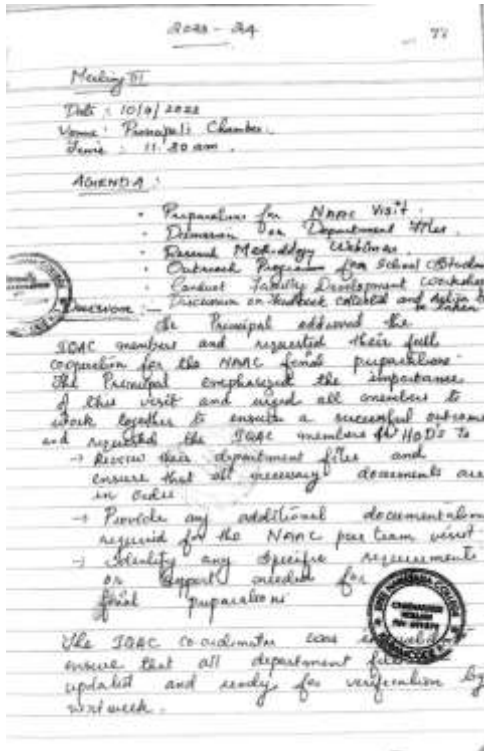 2023-24
77
Meeting III
Date : 10/9/2022
Venue : Principal's Chamber.
Time : 11.30 am.
AGENDA :
• Preparation for NAAC Visit.
• Discussion on Department files.
• Research Methodology Webinar.
• Outreach Program for School Students
• Conduct Faculty Development Workshop
• Discussion on feedback collected and Action to be taken
Discussion :-
The Principal addressed the
IQAC members and requested their full
cooperation for the NAAC final preparations.
The Principal emphasized the importance
of this visit and urged all members to
work together to ensure a successful outcome
and requested the IQAC members HOD's to
→ Review their department files and
ensure that all necessary documents are
in order
→ Provide any additional documentation
required for the NAAC peer team visit.
→ Identify any specific requirements
or support needed for
final preparations
The IQAC co-ordinator was
ensure that all department
updated and ready for verification by
next week.